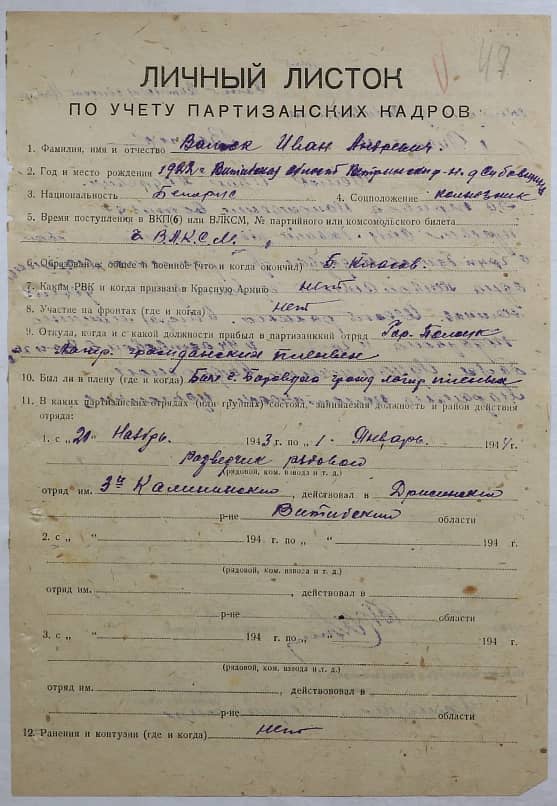 47
ЛИЧНЫЙ ЛИСТОК
ПО УЧЕТУ ПАРТИЗАНСКИХ КАДРОВ
1. Фамилия, имя и отчество Иван Андреевич
2. Год и место рождения 1922 г. Витебская область Ветринский р-н д.
3. Национальность Беларус 4. Соцположение колхозник
5. Время поступления в ВКП(б) или ВЛКСМ, № партийного или комсомольского билета
ВЛКСМ
6. Образование общее и военное (что и когда окончил) 6. классов.
7. Каким РВК и когда призван в Красную Армию нет
8. Участие на фронтах (где и когда) нет
9. Откуда, когда и с какой должности прибыл в партизанский отряд Гор. Полоцк
лагер. гражданских пленных
10. Был ли в плену (где и когда) Был с. Боровуха гражд лагер пленых
11. В каких партизанских отрядах (или группах) состоял, занимаемая должность и район действия
отряда:
1. с „20“ Ноябрь. 1943 г. по „1“ Январь. 1944 г.
Разведчик рядовой
(рядовой, ком. взвода и т. д.)
отряд им. 3й Калининский, действовал в Дрисенский
р-не Витибский области
2. с „ “ 194 г. по „ “ 194 г.
(рядовой, ком. взвода и т. д.)
отряд им. , действовал в
р-не области
3. с „ “ 194 г. по „ “ 194 г.
(рядовой, ком. взвода и т. д.)
отряд им. , действовал в
р-не области
12. Ранения и контузии (где и когда) нет